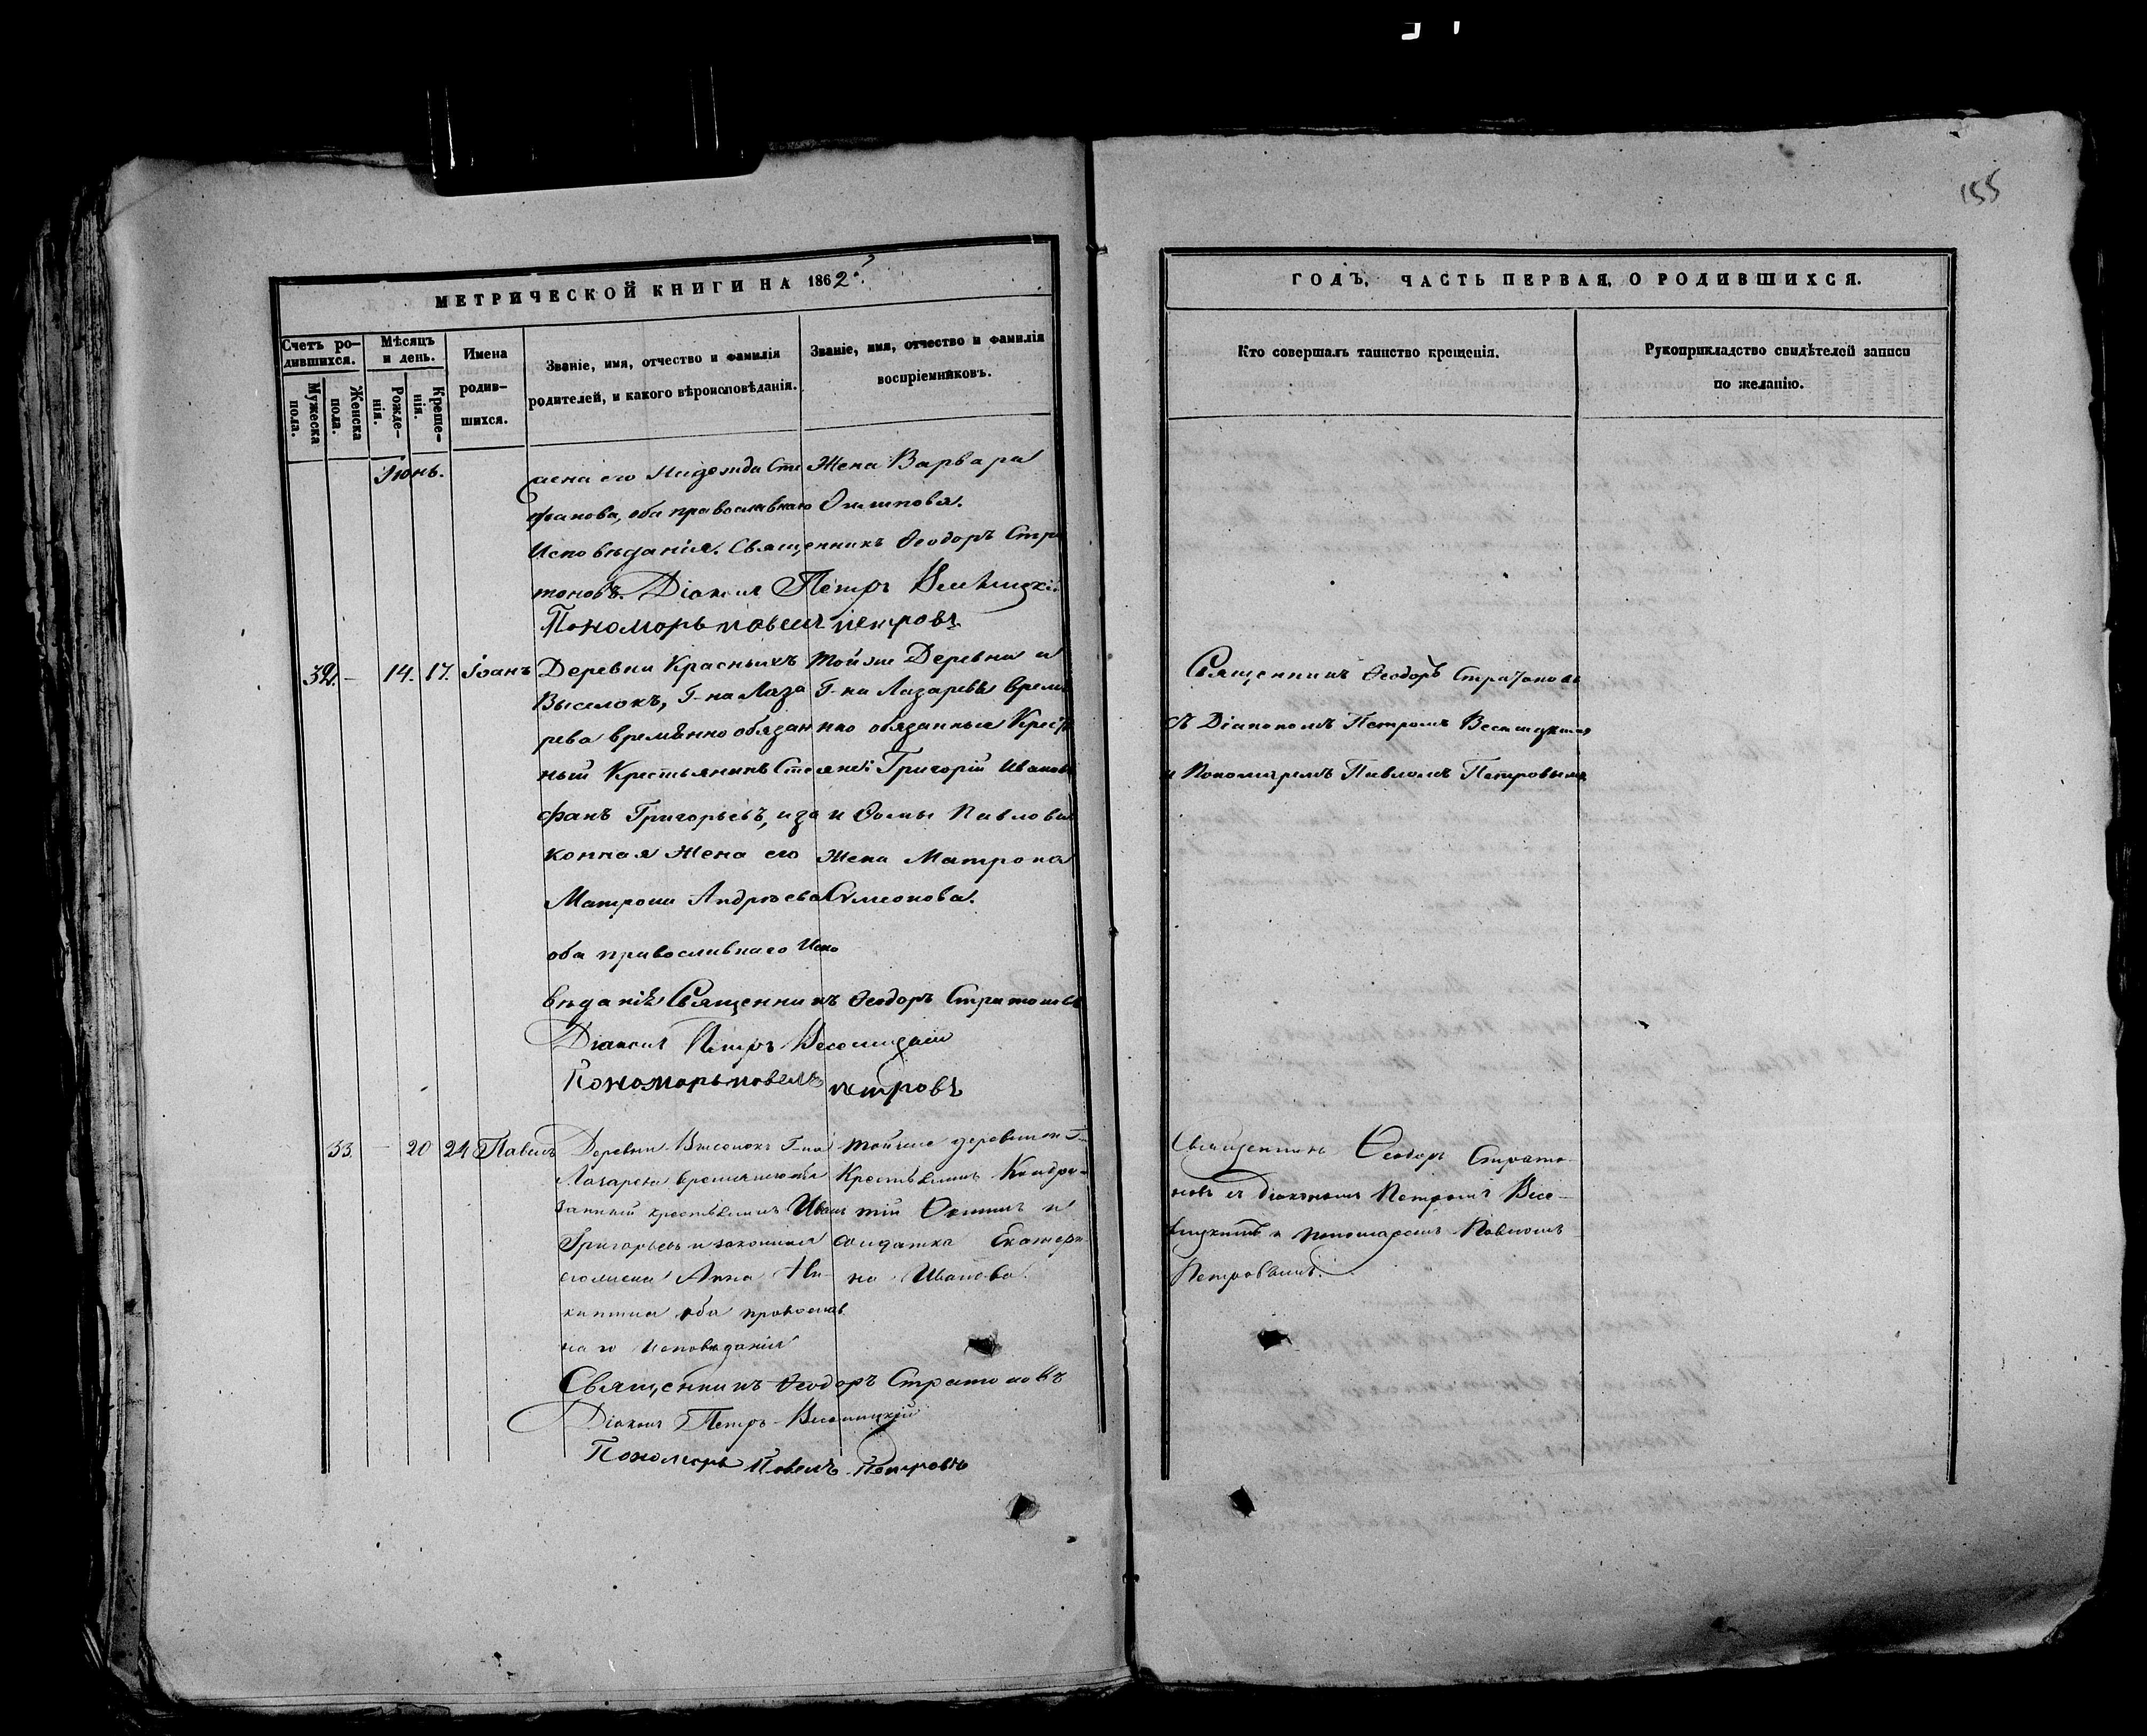 155
МЕТРИЧЕСКОЙ КНИГИ НА 1862
ГОДЪ, ЧАСТЬ ПЕРВАЯ, О РОДИВШИХСЯ.
Счетъ ро-
дившихся.
Мужеска
пола.
Женска
пола.
Мѣсяцъ
и день.
Рожде-
нія.
Креще-
нія.
Имена
родив-
шихся.
Званіе, имя, отчество и фамилія
родителей, и какого вѣроисповѣданія.
Званіе, имя, отчество и фамилія
воспріемниковъ.
Кто совершалъ таинство крещенія.
Рукоприкладство свидѣтелей записи
по желанію.
Іюнь.
жена его Надежда Сте
фанова, оба православнаго
Исповѣданія. Священникъ Ѳеодоръ Стра
тоновъ. Діаконъ Петръ
Пономорь повелъ петровъ
Жена Варвара
32. — 14. 17. Іоанъ
Деревни Красныхъ
Выселокъ, Г-на Лаза
рева временно обязан
ный Крестьянинъ Сте
фанъ Григорьевъ, и за
конная Жена его
Матрона Андреева
оба православнаго Испо
вѣданія Священникъ Ѳеодоръ Стратоновъ
Діаконъ Петръ
Пономорь повелъ петровъ
Той же Деревни и
Г-на Лазарева време
нно обязанные Крест
яне: Григорій Ивановъ
и Ѳомы Павлова
Жена Матрона
Сѵмеонова.
Священникъ Ѳеодоръ Стратоновъ
съ Діакономъ Петромъ
и Пономаремъ Павломъ Петровымъ
33. — 20 24 Павелъ
Деревни Выселокъ Г-на
Лазарева временнообя
занный крестьянинъ Иванъ
Григорьевъ и законная
его жена Анна Ни-
китина оба православ
наго Исповѣданія
Священникъ Ѳеодоръ Стратоновъ
Діаконъ Петръ
Пономорь Повелъ Петровъ
той же деревни и Г-
Крестьянинъ Кондра-
тій и
солдатка Екатери-
на Иванова.
Священникъ Ѳеодоръ Страто-
новъ съ діакономъ Петромъ Весе-
и пономаремъ Павломъ
Петровымъ.